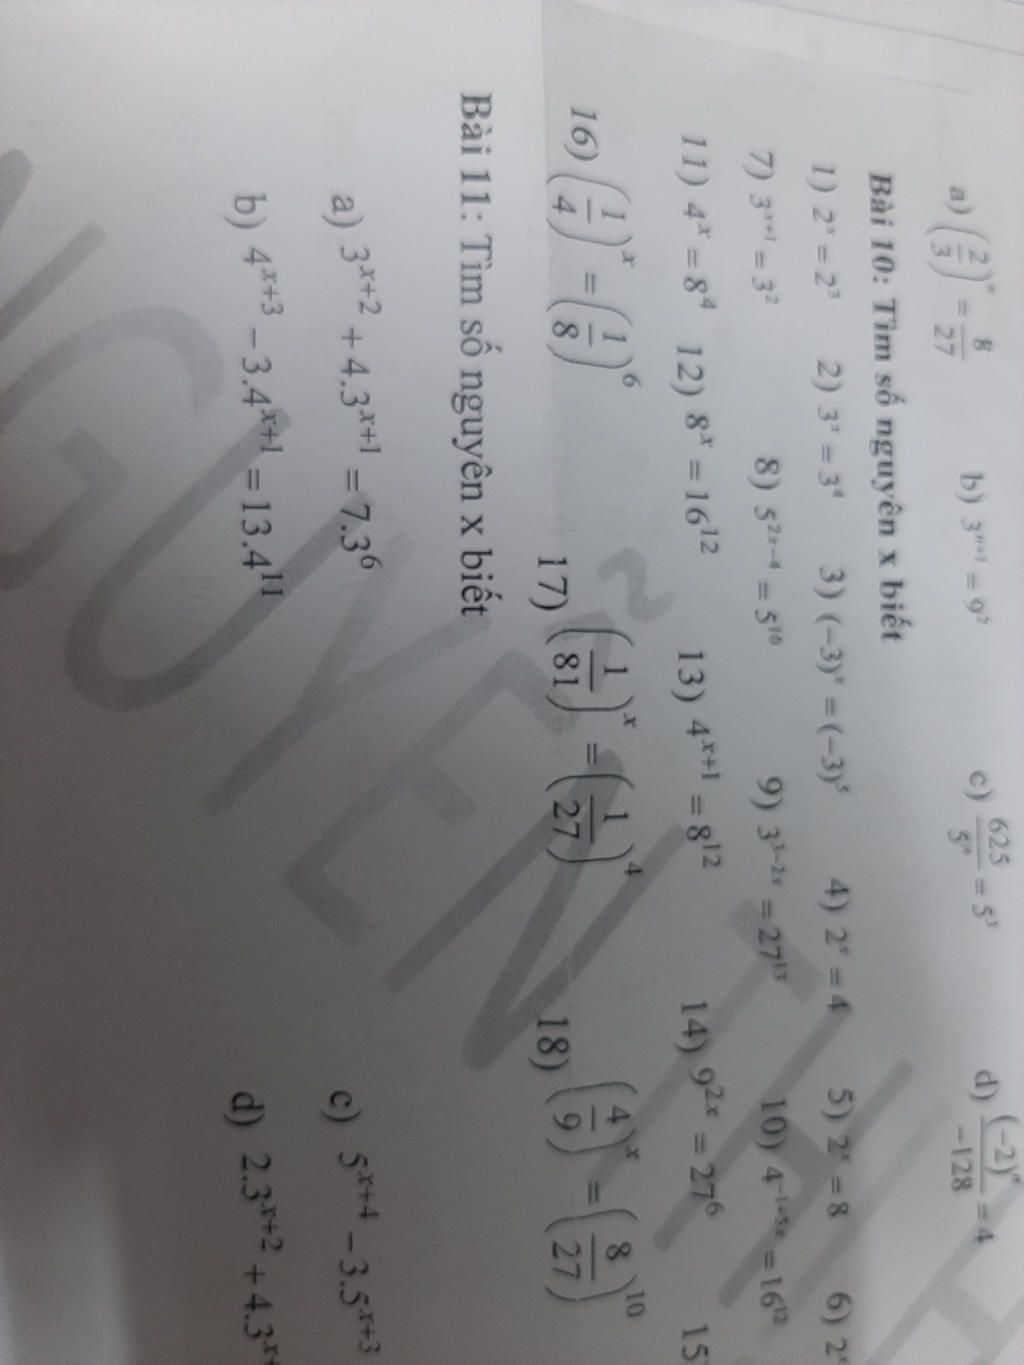 a) (2/3)ⁿ = 8/27 b) 3ⁿ⁺¹ = 9² c) 625/5ⁿ = 5³ d) (-2)ⁿ/-128 = 4
Bài 10: Tìm số nguyên x biết
1) 2ˣ = 2³ 2) 3ˣ = 3⁴ 3) (-3)ˣ = (-3)⁵ 4) 2ˣ = 4 5) 2ˣ = 8 6) 2ˣ
7) 3ˣ⁺¹ = 3² 8) 5²ˣ⁻⁴ = 5¹⁰ 9) 3³⁻²ˣ = 27¹³ 10) 4⁻¹⁺⁵ˣ = 16¹²
11) 4ˣ = 8⁴ 12) 8ˣ = 16¹² 13) 4ˣ⁺¹ = 8¹² 14) 9²ˣ = 27⁶ 15)
16) (1/4)ˣ = (1/8)⁶ 17) (1/81)ˣ = (1/27)⁴ 18) (4/9)ˣ = (8/27)¹⁰
Bài 11: Tìm số nguyên x biết
a) 3ˣ⁺² + 4.3ˣ⁺¹ = 7.3⁶ c) 5ˣ⁺⁴ − 3.5ˣ⁺³
b) 4ˣ⁺³ − 3.4ˣ⁺¹ = 13.4¹¹ d) 2.3ˣ⁺² + 4.3ˣ⁺